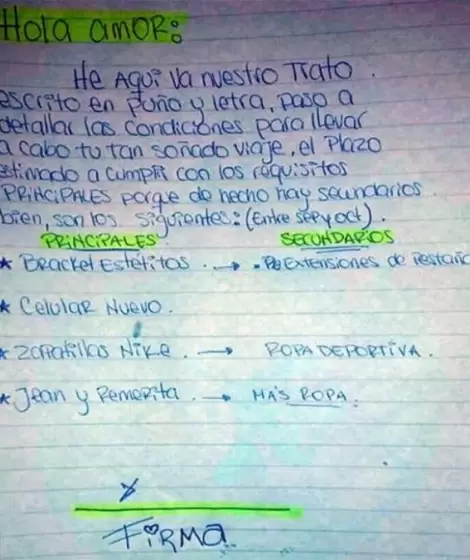 Hola amor:
He Aqui Va nuestro Trato.
escrito en puño y letra, paso a
detallar las condiciones para llevar
a cabo tu tan soñado viaje, el Plazo
estimado a cumplir con los requisitos
PRINCIPALES porque de hecho hay secundarios.
bien, son los siguientes: (Entre sep y oct).
PRINCIPALES SECUNDARIOS
* Bracket Estétitos. → . Extensiones de Pestaña
* Celular Nuevo.
* Zapatillas Nike. → ROPA DEPORTIVA.
* Jean y Remerita. → MÁS ROPA.
X
FIRMA.